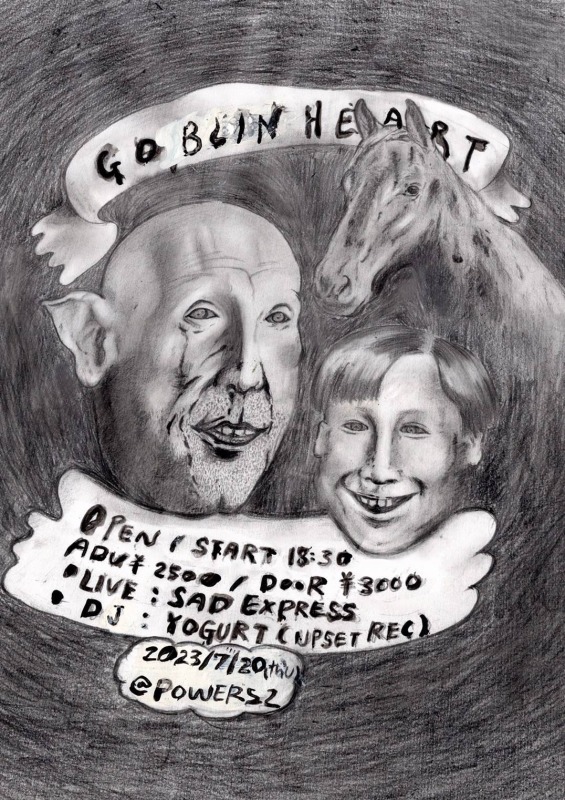 GOBLIN HEART
OPEN / START 18:30
ADV ¥ 2500 / DOOR ¥3000
• LIVE : SAD EXPRESS
• DJ : YOGURT (UPSET REC)
2023/7/20(thu)
@POWERS2